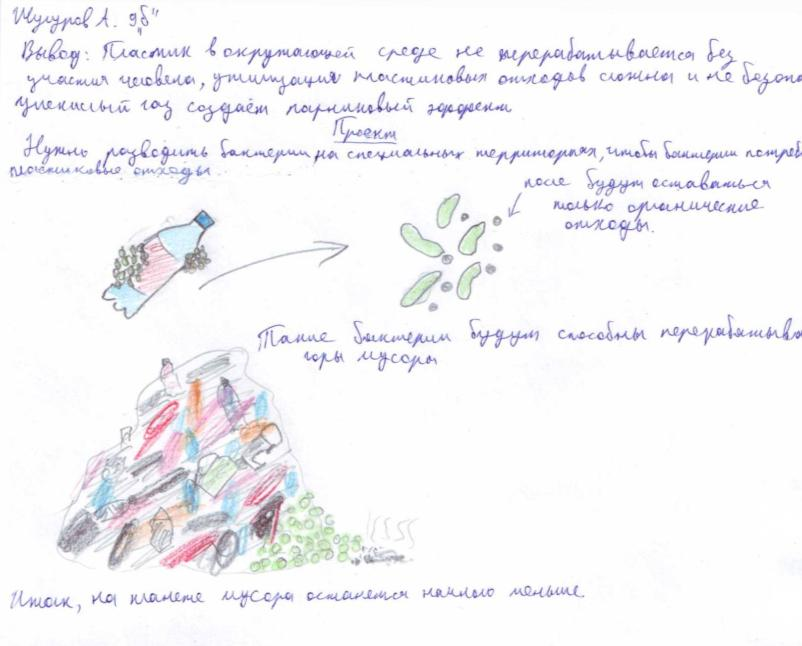 Шугуров А. 9„б"
Вывод: Пластик в окружающей среде не перерабатывается без
участия человека, утилизация пластиковых отходов сложна и не безопа
углекислый газ создаёт парниковый эффект
Проект
Нужно разводить бактерии на специальных территориях, чтобы бактерии потреб
пластиковые отходы.
после будут оставаться
только органические
отходы.
Такие бактерии будут способны перерабатыва
горы мусора
Итак, на планете мусора останется намного меньше.